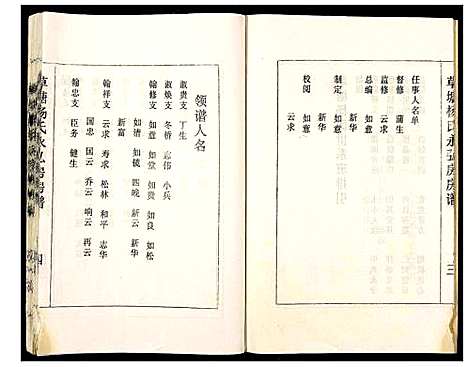 草塘杨氏永弘房房谱
三
任事人名单
督修 蒲生
监修 云求
总编 新华
如意
制定 新华
如意
校阅 云求
领谱人名
淑贵支 丁生
淑焕支 冬桥 志伟 小兵
翰修支 如意 如堂 如贵 如良 如松
如清 如镜 四晚 新云 新华
新富
翰祥支 云求 寿求 松林 和平 志华
国忠 国云 乔云 响云 再云
翰忠支 臣务 健生
四